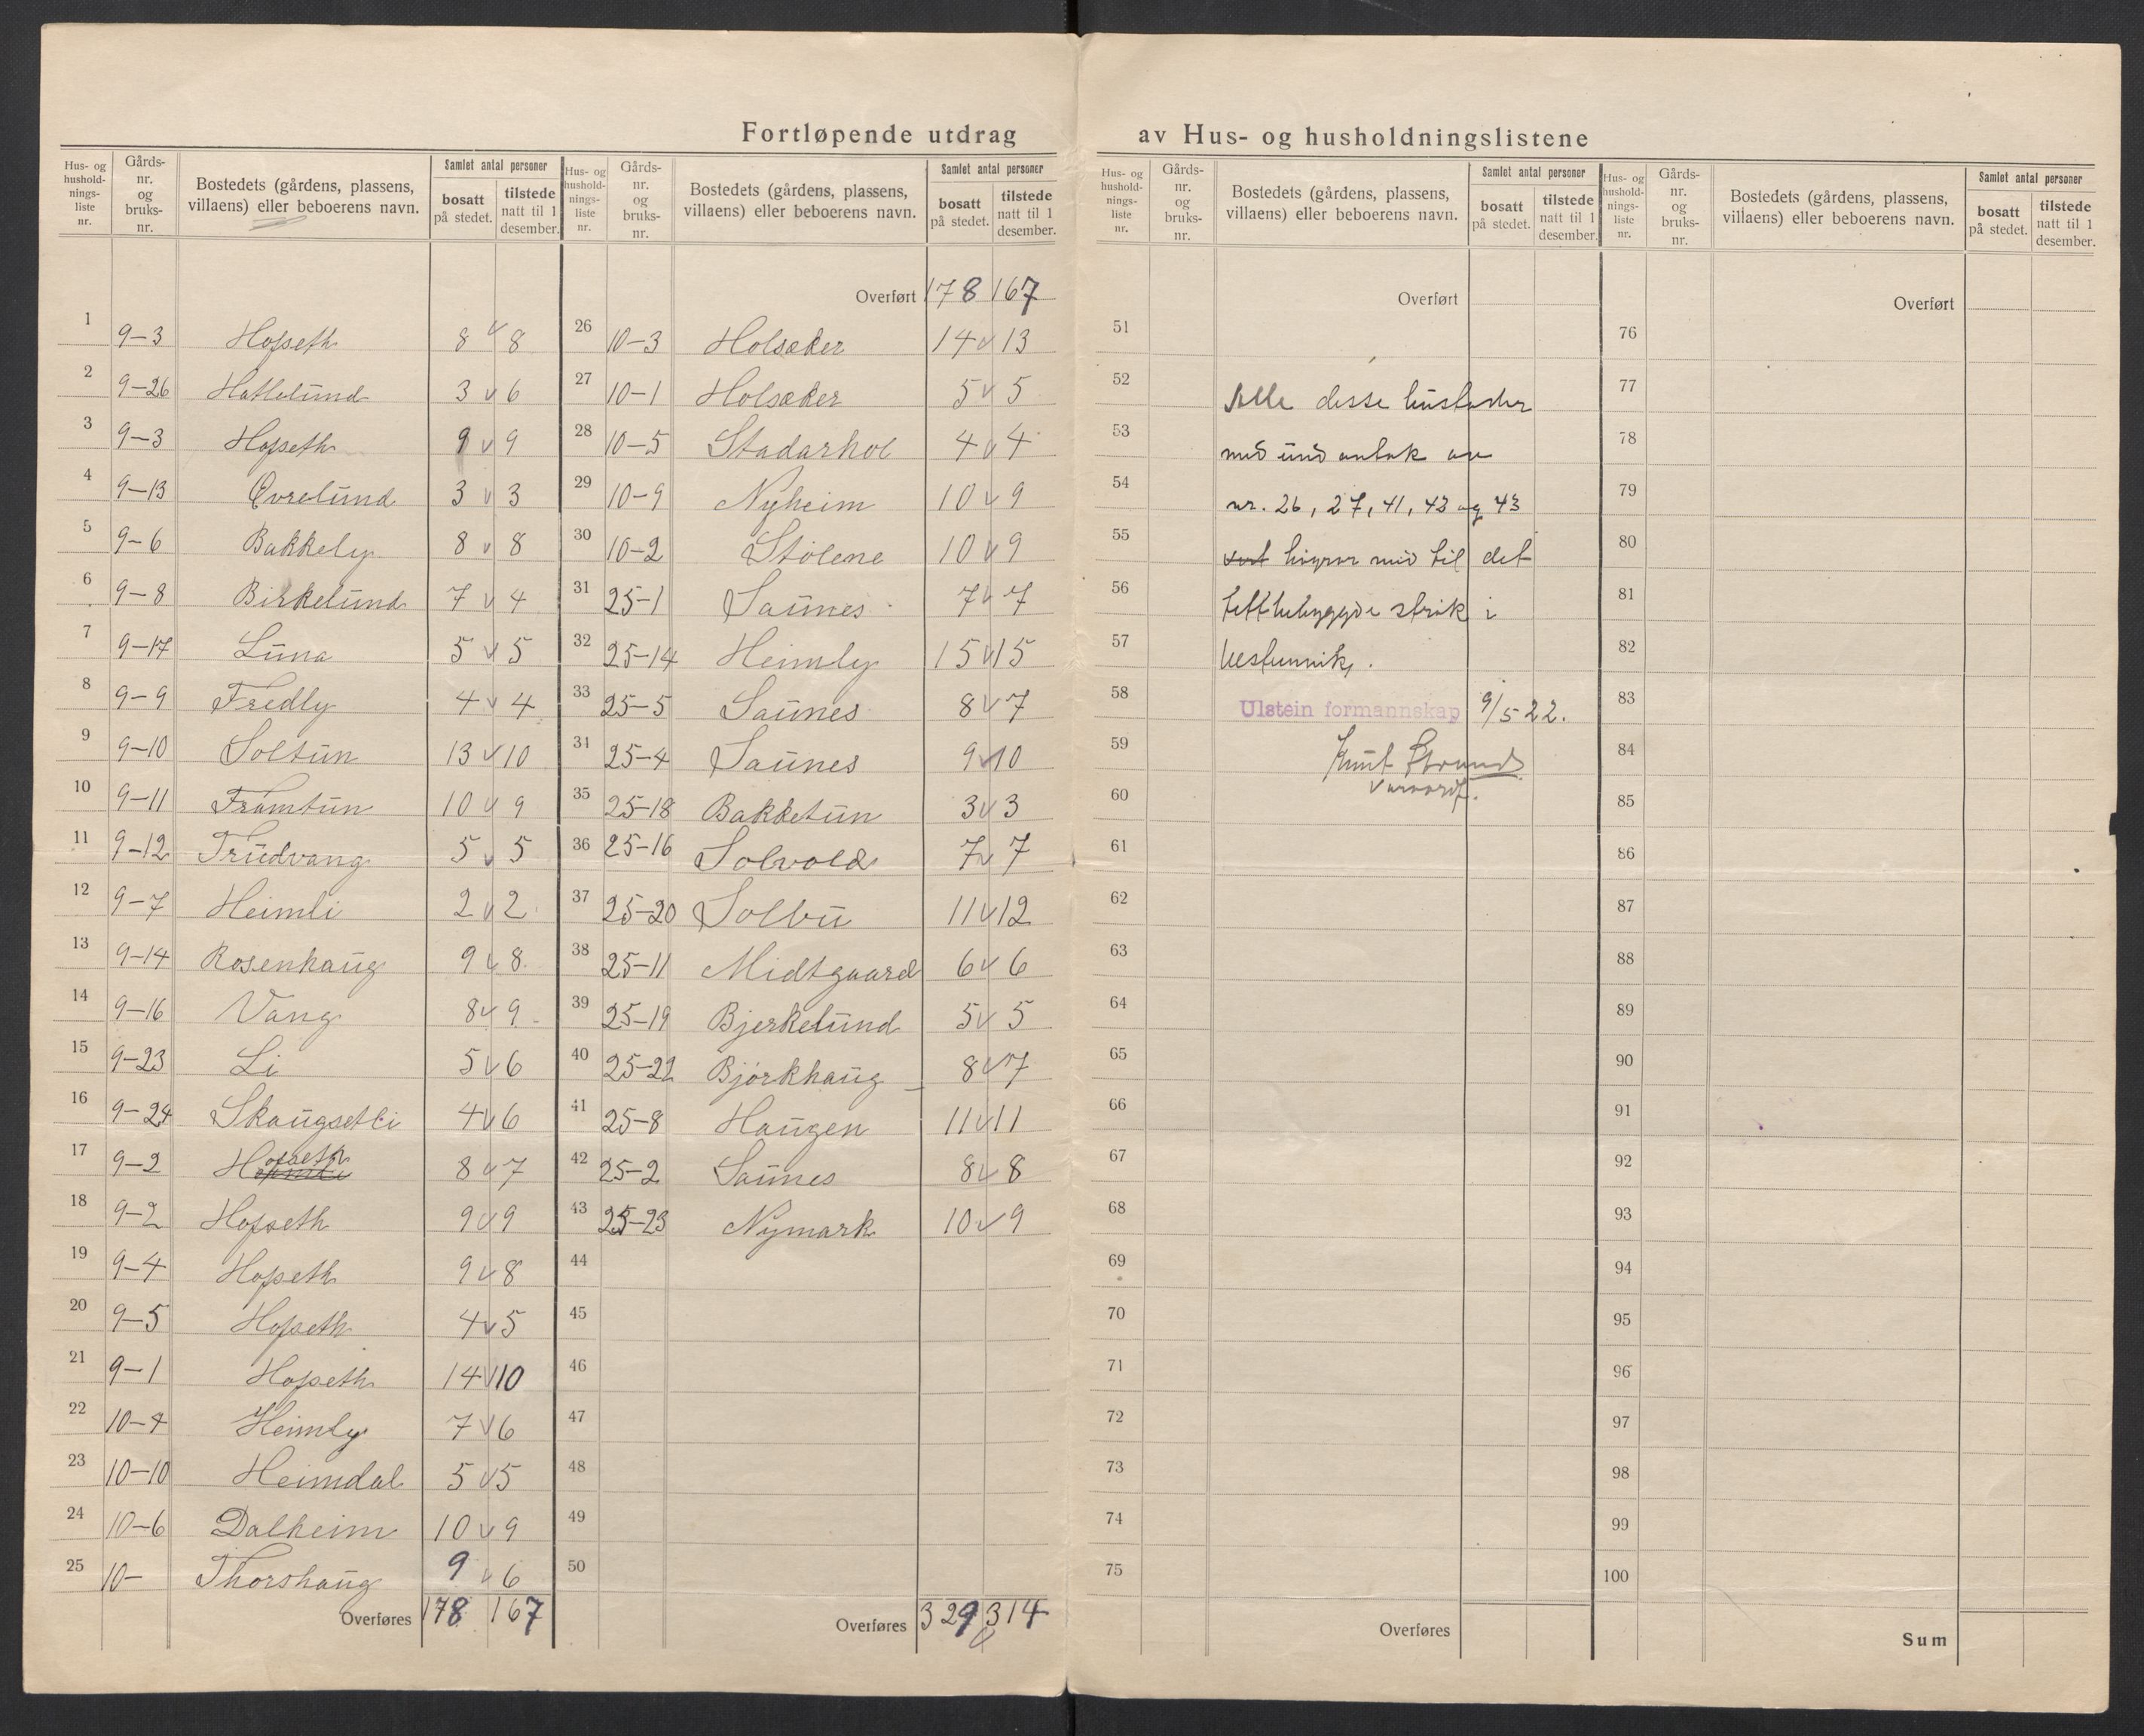 Fortløpende utdrag av Hus- og husholdningslistene
Hus- og husholdnings-liste nr. | Gårds-nr. og bruks-nr. | Bostedets (gårdens, plassens, villaens) eller beboerens navn. | Samlet antal personer | bosatt på stedet. | tilstede natt til 1 desember.
1 9-3 Hofseth 8 v 8
2 9-26 Hatlelund 3 v 6
3 9-3 Hofseth 9 v 9
4 9-13 Øvrelund 3 v 3
5 9-6 Bakkely 8 v 8
6 9-8 Birkelund 7 v 4
7 9-17 Luna 5 v 5
8 9-9 Fredly 4 v 4
9 9-10 Soltun 13 v 10
10 9-11 Framtun 10 v 9
11 9-12 Trudvang 5 v 5
12 9-7 Heimli 2 v 2
13 9-14 Rosenhaug 9 v 8
14 9-16 Vang 8 v 9
15 9-23 Li 5 v 6
16 9-24 Skaugsetli 4 v 6
17 9-2 Hofseth 8 v 7
18 9-2 Hofseth 9 v 9
19 9-4 Hofseth 9 v 8
20 9-5 Hofseth 4 v 5
21 9-1 Hofseth 14 v 10
22 10-4 Heimly 7 v 6
23 10-10 Heimdal 5 v 5
24 10-6 Dalheim 10 v 9
25 10- Thorshaug 9 v 6
Overføres 178 167
Hus- og husholdnings-liste nr. | Gårds-nr. og bruks-nr. | Bostedets (gårdens, plassens, villaens) eller beboerens navn. | Samlet antal personer | bosatt på stedet. | tilstede natt til 1 desember.
Overført 178 167
26 10-3 Holsæker 14 v 13
27 10-1 Holsæker 5 v 5
28 10-5 Stadarhol 4 v 4
29 10-9 Nyheim 10 v 9
30 10-2 Stølene 10 v 9
31 25-1 Saunes 7 v 7
32 25-14 Heimly 15 v 15
33 25-5 Saunes 8 v 7
34 25-4 Saunes 9 v 10
35 25-18 Bakketun 3 v 3
36 25-16 Solvold 7 v 7
37 25-20 Solbu 11 v 12
38 25-11 Midtgaard 6 v 6
39 25-19 Bjerkelund 5 v 5
40 25-22 Bjørkhaug 8 v 7
41 25-8 Haugen 11 v 11
42 25-2 Saunes 8 v 8
43 25-23 Nymark 10 v 9
44
45
46
47
48
49
50
Overføres 329 314
Hus- og husholdnings-liste nr. | Gårds-nr. og bruks-nr. | Bostedets (gårdens, plassens, villaens) eller beboerens navn. | Samlet antal personer | bosatt på stedet. | tilstede natt til 1 desember.
Overført
51
52 Alle disse huslister
53 med und antak av
54 nr. 26, 27, 41, 42 og 43
55 høyrer med til det
56 tettbebyggde strøk i
57 Ulsteinvik.
58 Ulstein formannskap 9/5 22.
59 Knut Strand
60 varaordf.
61
62
63
64
65
66
67
68
69
70
71
72
73
74
75
Overføres
Hus- og husholdnings-liste nr. | Gårds-nr. og bruks-nr. | Bostedets (gårdens, plassens, villaens) eller beboerens navn. | Samlet antal personer | bosatt på stedet. | tilstede natt til 1 desember.
Overført
76
77
78
79
80
81
82
83
84
85
86
87
88
89
90
91
92
93
94
95
96
97
98
99
100
Sum